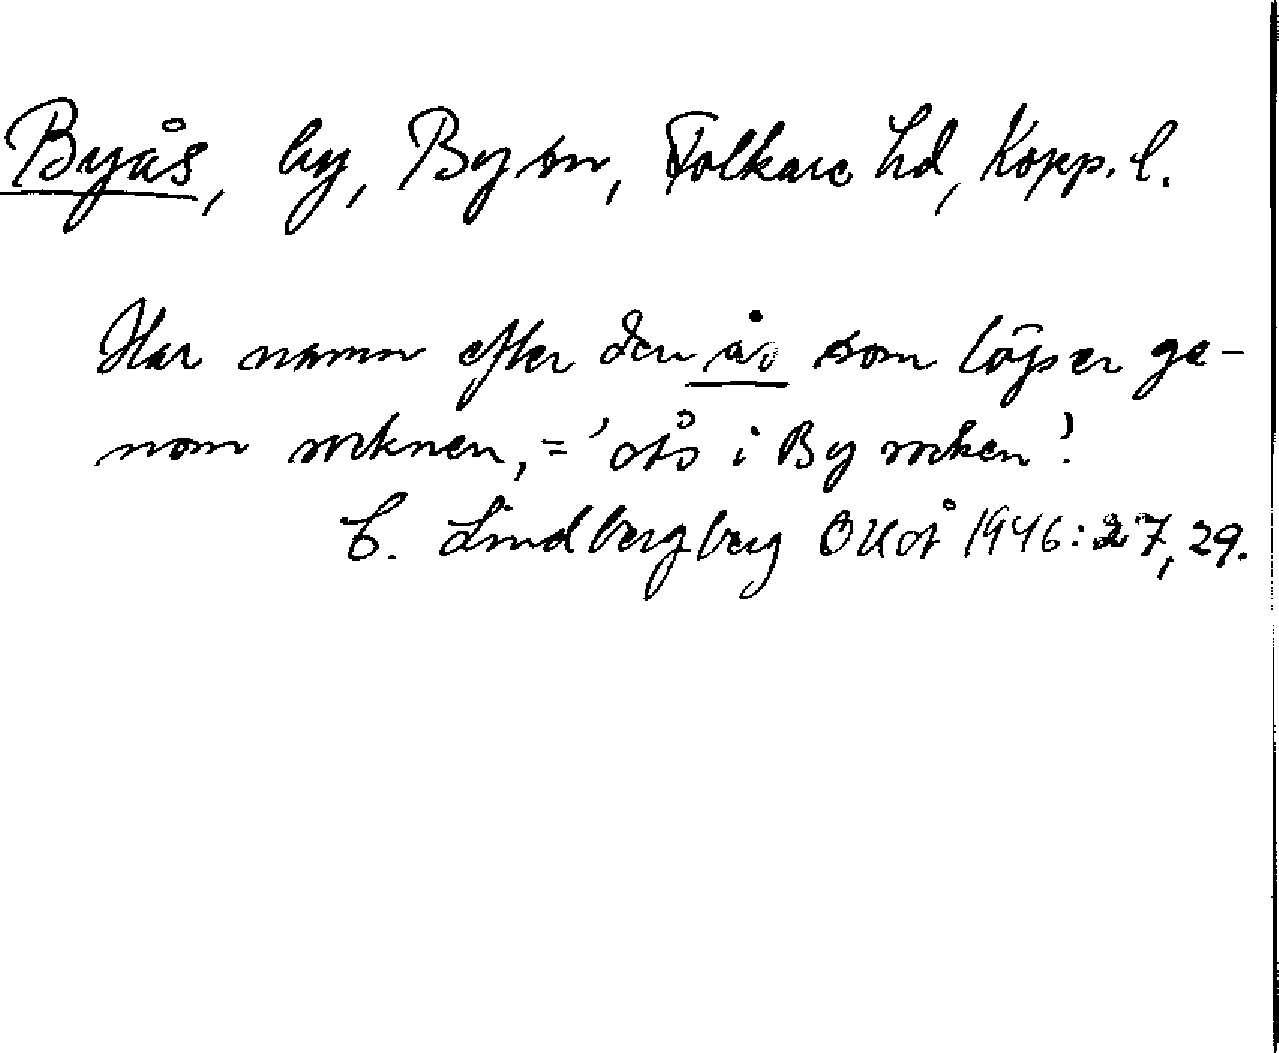 Byås, by, By sn, Folkare hd, Kopp. l.
Har namn efter den ås som löper ge-
nom socknen, = 'ås i By socken'.
C. Lindbergberg OUÅ 1946: 27, 29.